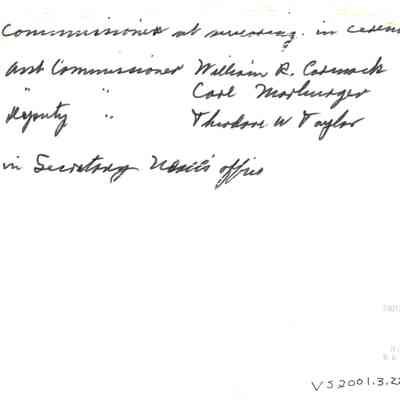 Commissioner at swearing in cerem
Asst Commissioner William R. Carmack
" " Carl Marburger
Deputy " Theodore W Taylor
in Secretary office
VS2001.3.22